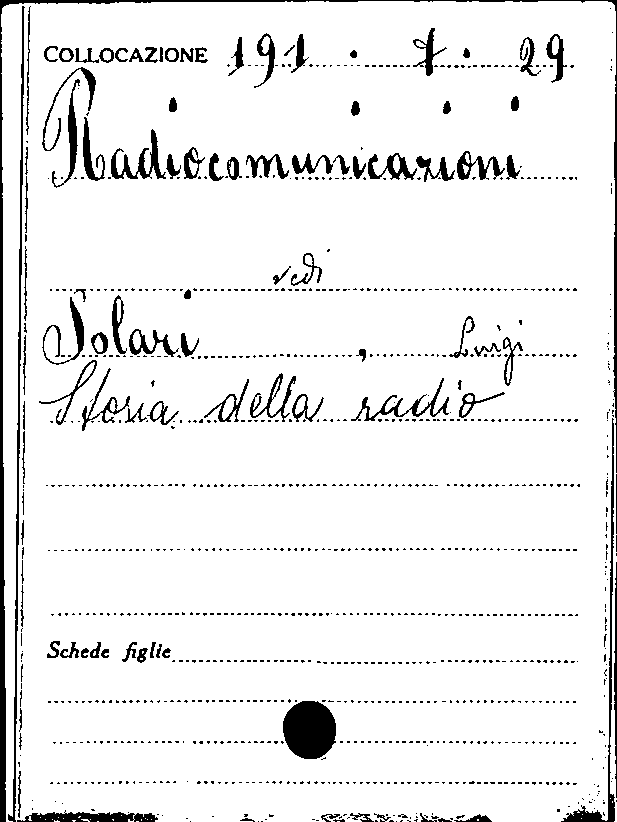 COLLOCAZIONE 191 . 7 . 29
Radiocomunicazioni
vedi
Solari , Luigi
Storia della radio
Schede figlie